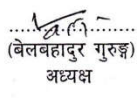 (बेलबहादुर गुरुङ्ग)
अध्यक्ष